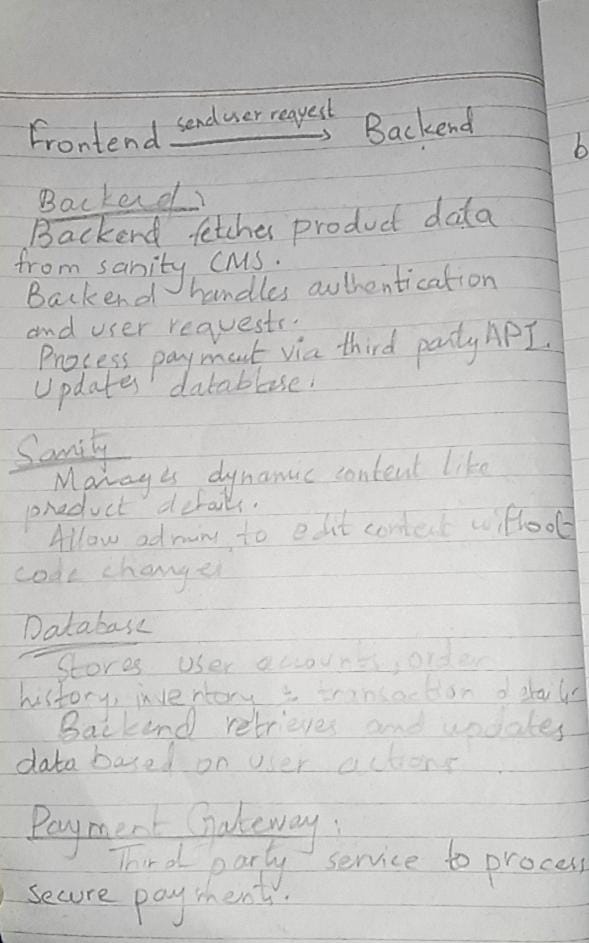 Frontend send user request → Backend
b
Backend:
Backend fetches product data
from sanity CMS.
Backend handles authentication
and user requests.
Process payment via third party API.
Updates database.
Sanity
Manages dynamic content like
product details.
Allow admin to edit content without
code changes
Database
Stores user accounts, order
history, inventory & transaction details
Backend retrieves and updates
data based on user actions
Payment Gateway:
Third party service to process
secure payments.